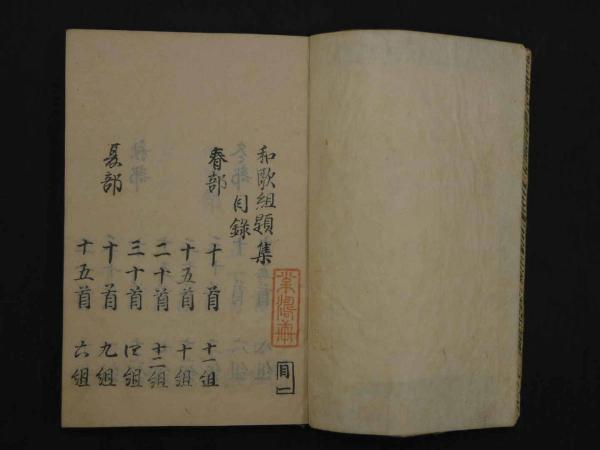 和歌組題集
目録
春部
十首 十一組
十五首 十組
二十首 十二組
三十首 四組
夏部
十首 九組
十五首 六組